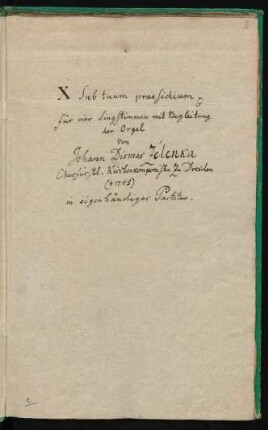 X Sub tuum praesidium
für vier Singstimmen mit Begleitung
der Orgel
von
Johann Dismas Zelenka
Churfürstl. Kirchenkomponiste zu Dresden
(†1745)
in eigenhändiger Partitur.